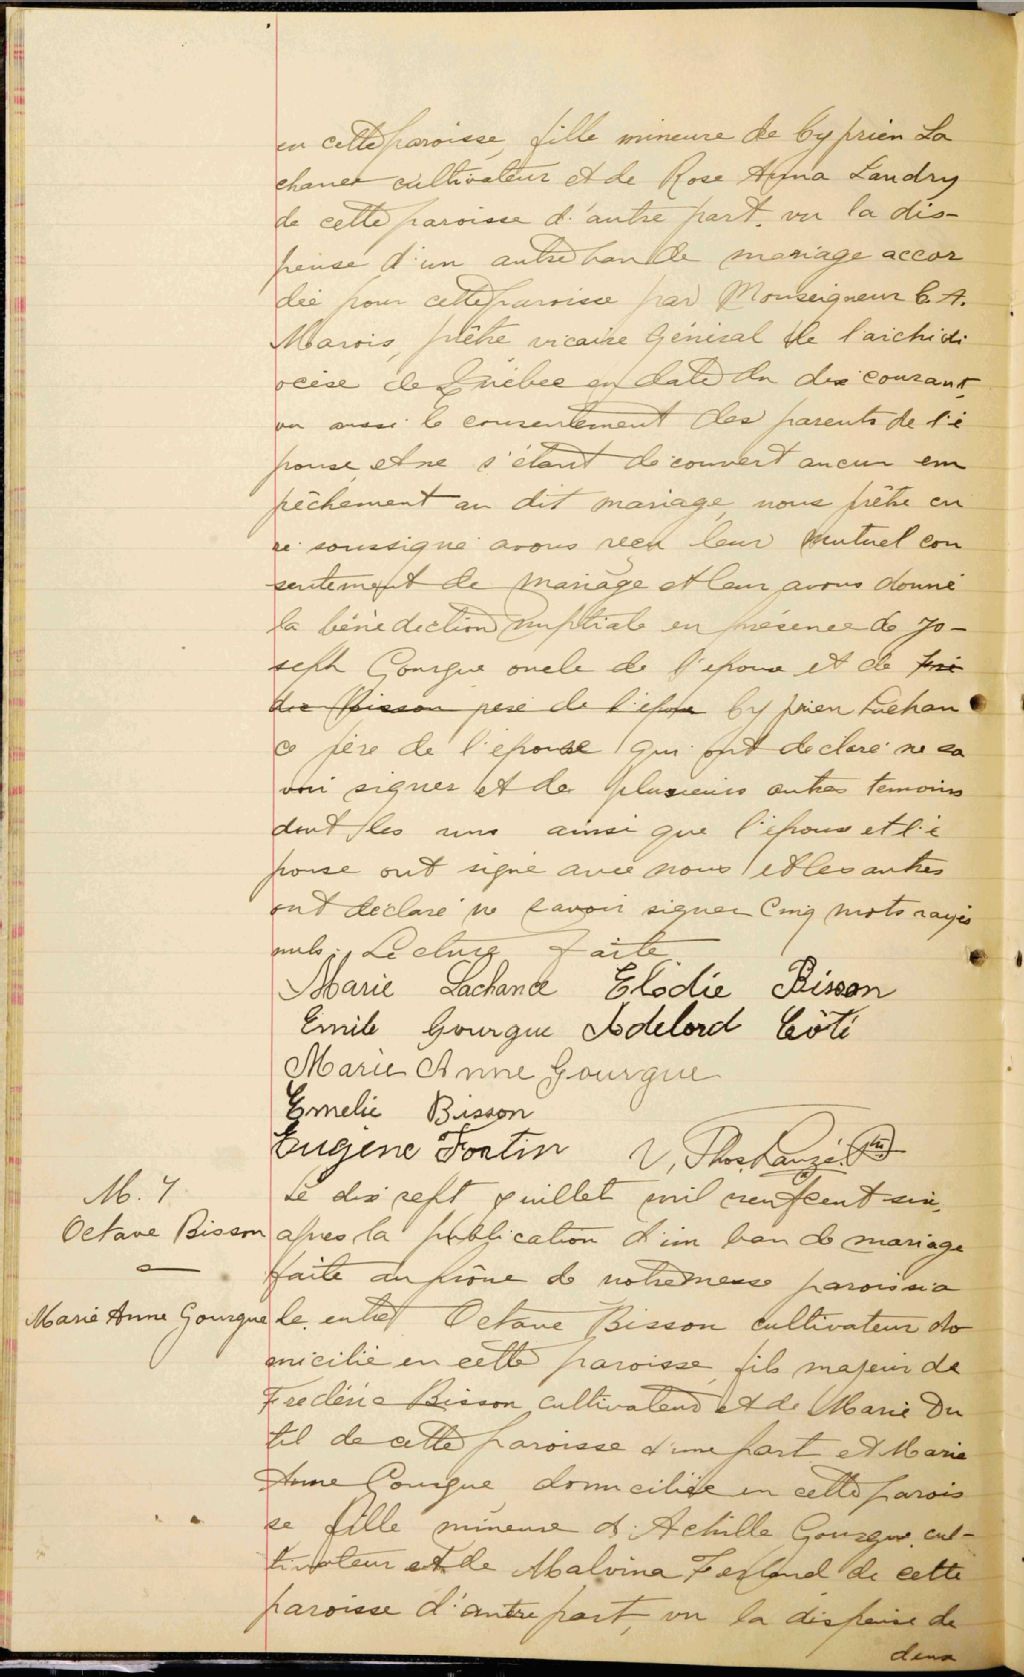 en cette paroisse, fille mineure de Cyprien La
chance cultivateur et de Rose Anna Landry
de cette paroisse d'autre part, vu la dis-
pense d'un autre ban de mariage accor
dée pour cette paroisse par Monseigneur C. A.
Marois, prêtre vicaire Général de l'archidi
ocèse de Québec en date du dix courant,
vu aussi le consentement des parents de l'é
pouse, et ne s'étant découvert aucun em
pêchement au dit mariage, nous prêtre cu
ré soussigné avons reçu leur mutuel con
sentement de mariage et leur avons donné
la bénédiction nuptiale en présence de Jo-
seph Gourgue oncle de l'époux et de Fré
déric Bisson père de l'époux Cyprien Lachan
ce père de l'épouse qui ont déclaré ne sa
voir signer et de plusieurs autres témoins
dont les uns ainsi que l'époux et l'é
pouse ont signé avec nous et les autres
ont déclaré ne savoir signer Cinq mots rayés
nuls. Lecture faite
Marie Lachance Elodie Bisson
Emile Gourgue Adelord Côté
Marie Anne Gourgue
Emelie Bisson
Eugène Fortin V. Thos. Lauzé. Ptre
M. 7
Octave Bisson
Marie Anne Gourgue
Le dix sept juillet mil neuf cent six,
après la publication d'un ban de mariage
faite au prône de notre messe paroissia
le, entre Octave Bisson cultivateur do
micilié en cette paroisse, fils majeur de
Frédéric Bisson cultivateur et de Marie Du
til de cette paroisse d'une part et Marie
Anne Gourgue domiciliée en cette parois
se fille mineure d'Achille Gourgue cul-
tivateur et de Malvina Ferland de cette
paroisse d'autre part, vu la dispense de
deux